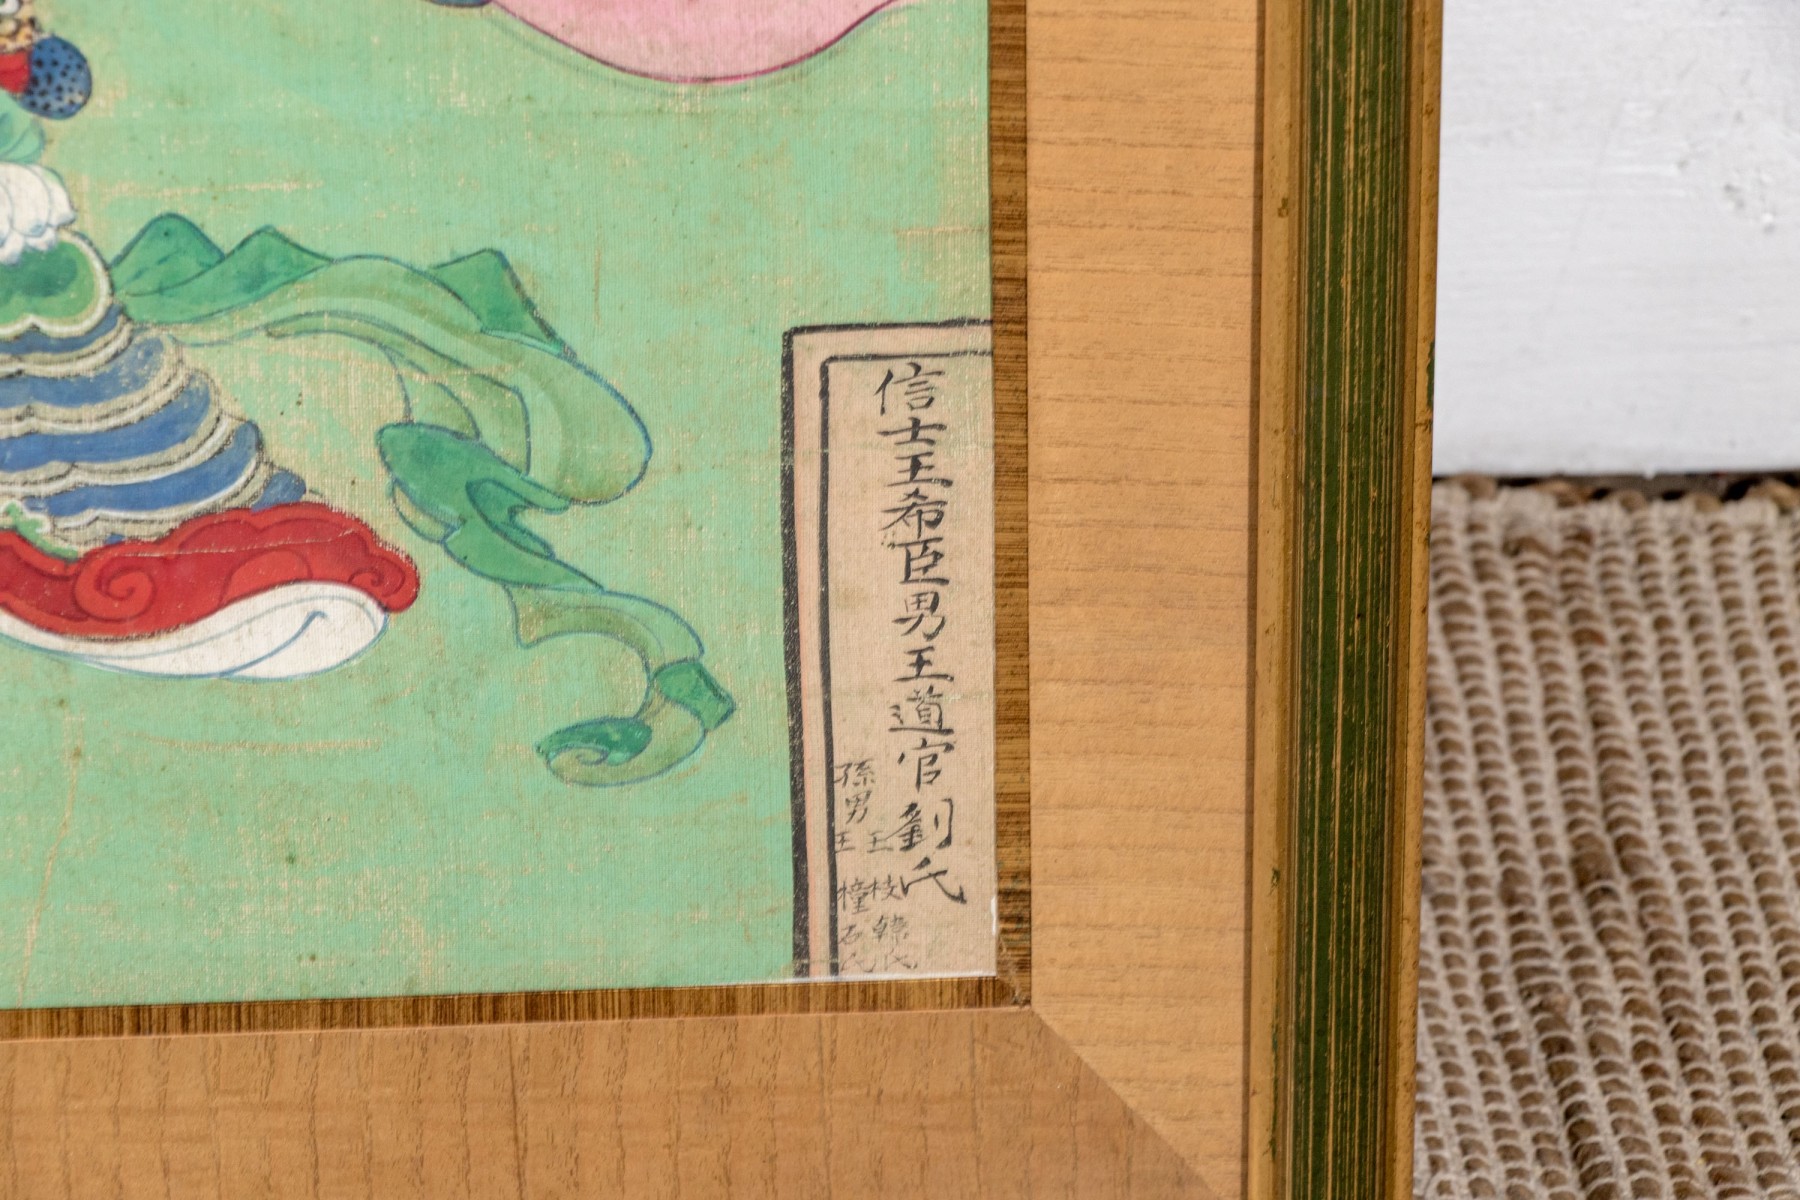 信士王希臣男王道官劉氏
王 枝 韓氏
孫男王 橦 石氏